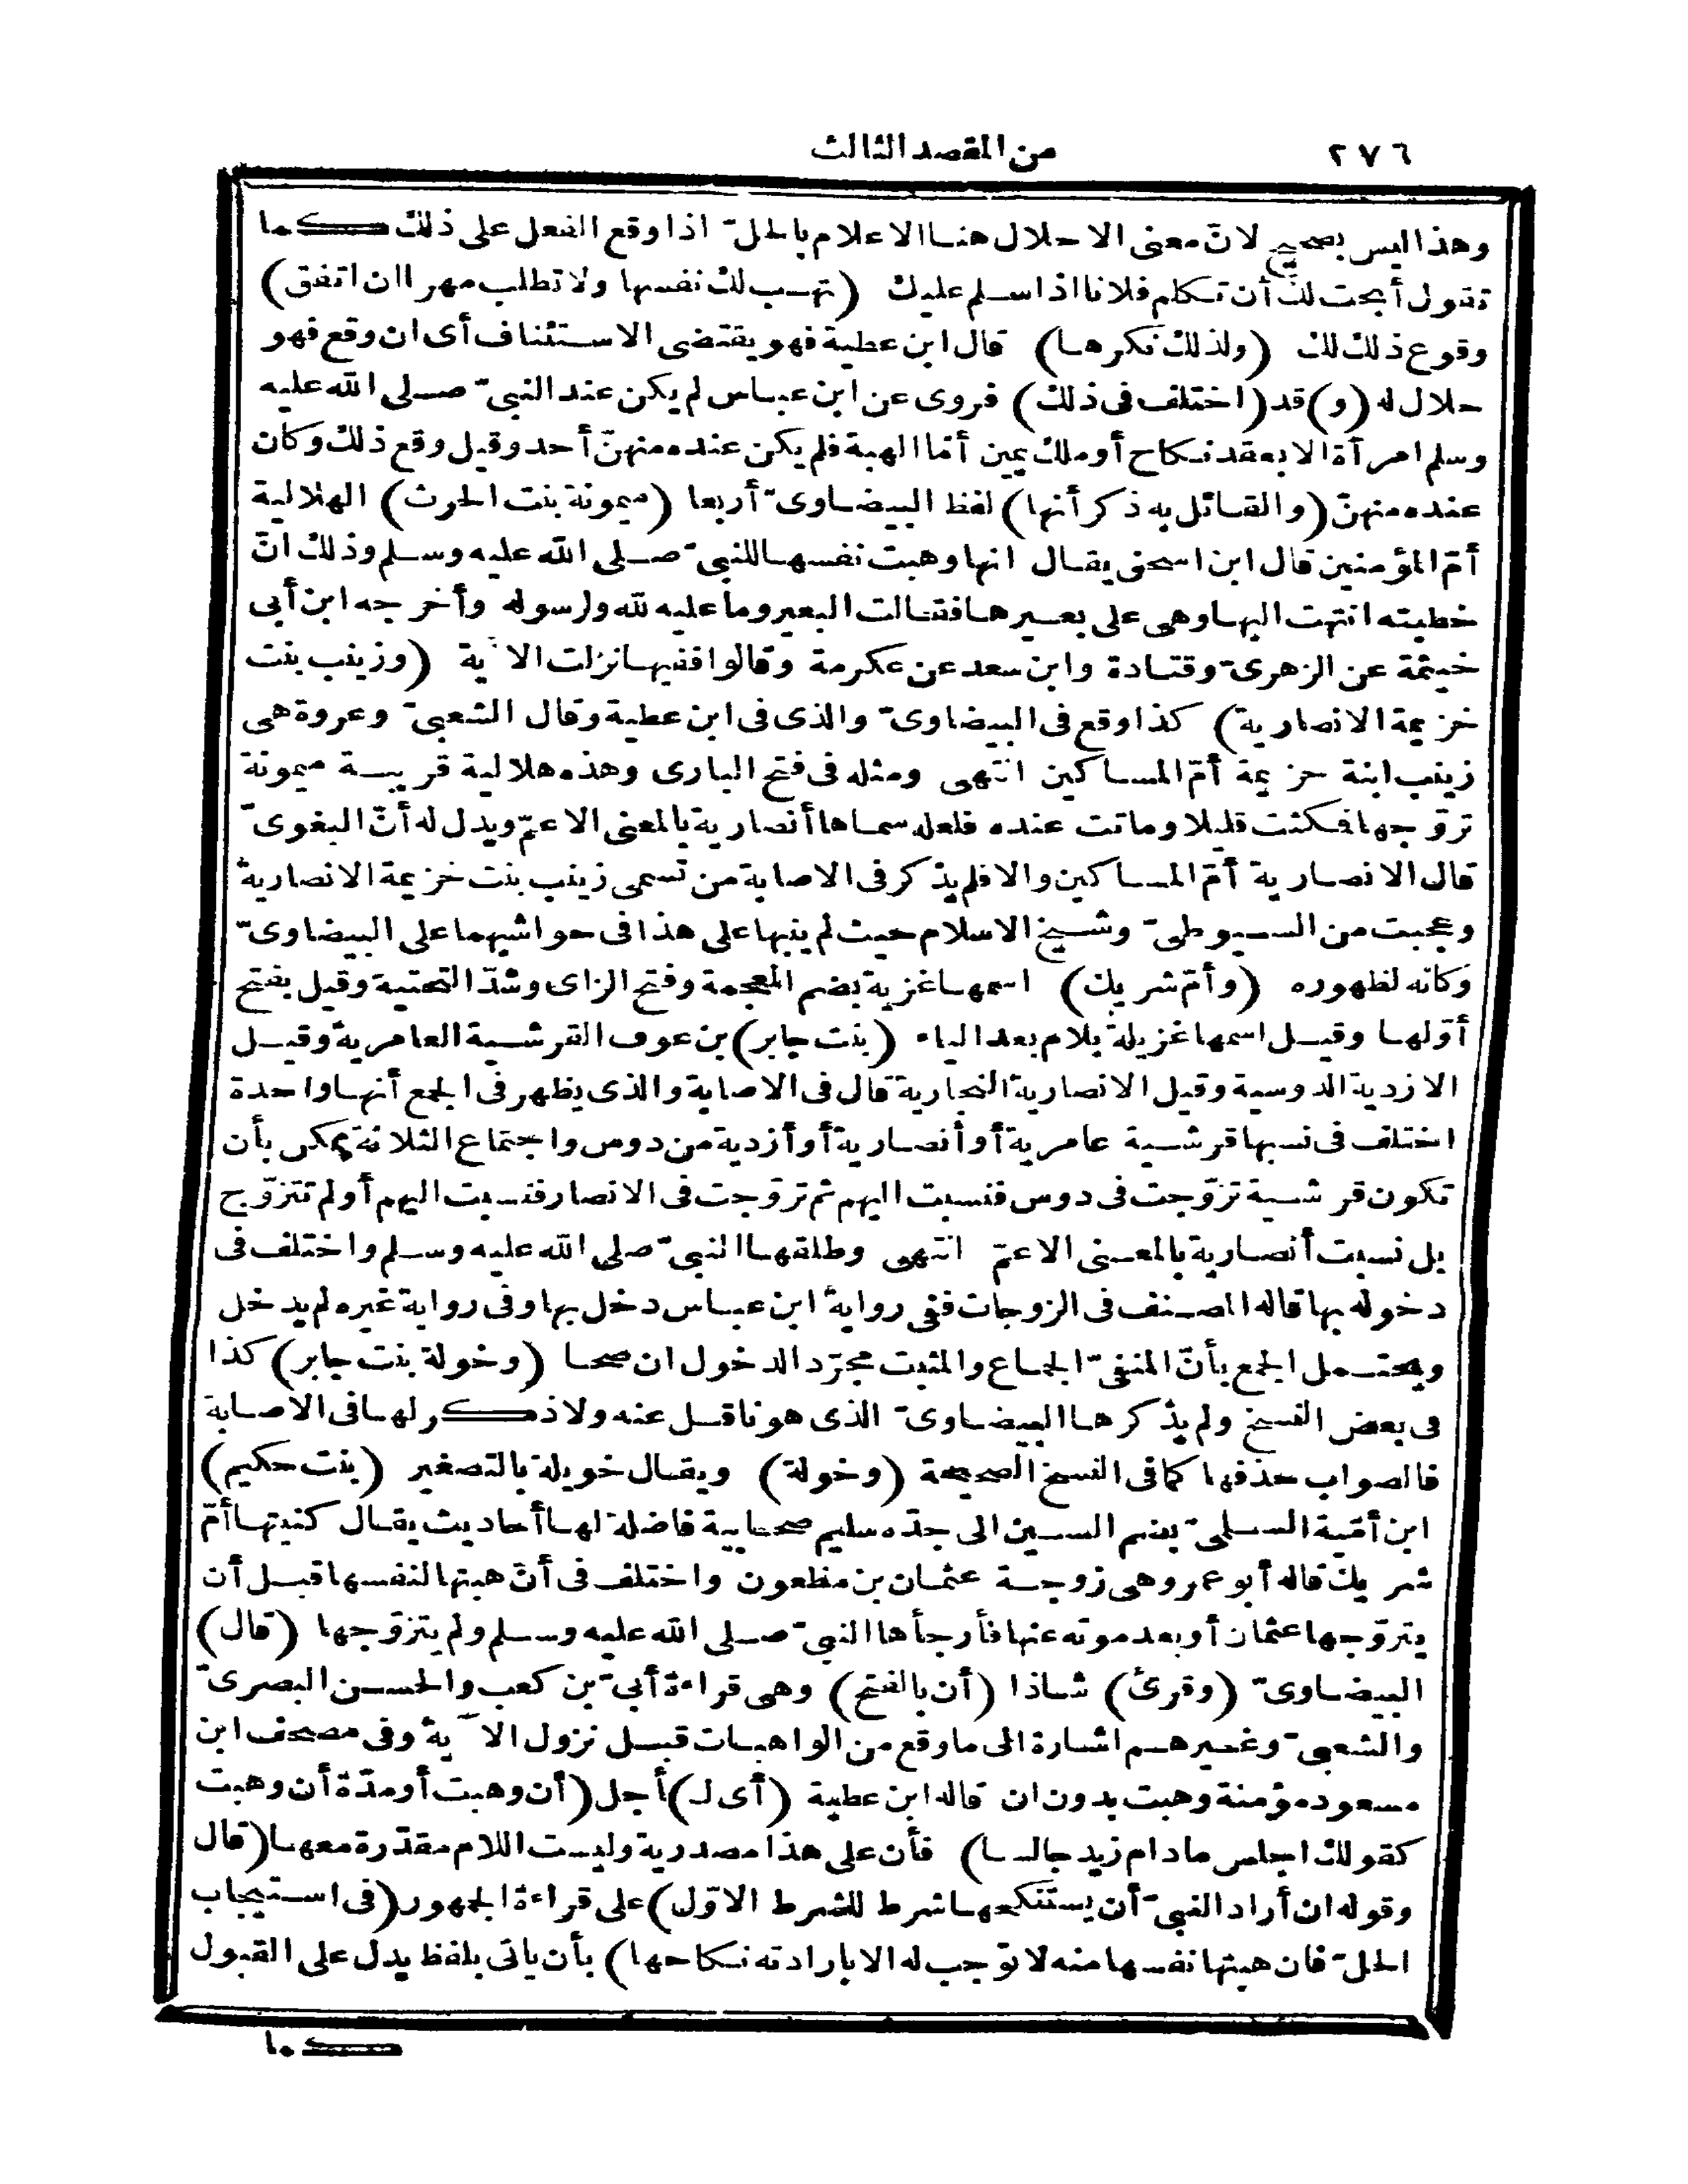 ٢٧٦ من المقصد الثالث
وهذا ليس بصحيح لانّ معنى الاحلال هنا الاعلام بالحلّ اذا وقع الفعل على ذلك كما
تقول أبحت لك أن تكلم فلانا اذا سلم عليك (تهب لك نفسها ولا تطلب مهرا ان اتفق)
وقوع ذلك لك (ولذلك نكرها) قال ابن عطية فهو يقتضى الاستئناف أى ان وقع فهو
حلال له (و) قد (اختلف فى ذلك) فروى عن ابن عباس لم يكن عند النبىّ صلى الله عليه
وسلم امرأة الا بعقد نكاح أو ملك يمين أمّا الهبة فلم يكن عنده منهنّ أحد وقيل وقع ذلك وكان
عنده منهنّ (والقائل به ذكر أنها) لفظ البيضاوىّ أربعا (ميمونة بنت الحرث) الهلالية
أمّ المؤمنين قال ابن اسحق يقال انها وهبت نفسها للنبىّ صلى الله عليه وسلم وذلك انّ
خطبته انتهت اليها وهى على بعيرها فقالت البعير وما عليه لله ولرسوله وأخرجه ابن أبى
خيثمة عن الزهرىّ وقتادة وابن سعد عن عكرمة وقالوا ففيها نزلت الآية (وزينب بنت
خزيمة الانصارية) كذا وقع فى البيضاوىّ والذى فى ابن عطية وقال الشعبىّ وعروة هى
زينب ابنة خزيمة أمّ المساكين انتهى ومثله فى فتح البارى وهذه هلالية قريبة ميمونة
تزوّجها فمكثت قليلا وماتت عنده فلعله سماها أنصارية بالمعنى الاعمّ ويدل له أنّ البغوىّ
قال الانصارية أمّ المساكين والا فلم يذكر فى الاصابة من تسمى زينب بنت خزيمة الانصارية
وعجبت من السيوطىّ وشيخ الاسلام حيث لم ينبها على هذا فى حواشيهما على البيضاوىّ
وكانه لظهوره (وأمّ شريك) اسمها غزية بضم المعجمة وفتح الزاى وشدّ التحتية وقيل بفتح
أوّلها وقيل اسمها غزيلة بلام بعد الياء (بنت جابر) بن عوف القرشية العامرية وقيل
الازدية الدوسية وقيل الانصارية النجارية قال فى الاصابة والذى يظهر فى الجمع أنها واحدة
اختلف فى نسبها قرشية عامرية أو أنصارية أو أزدية من دوس واجتماع الثلاثة يمكن بأن
تكون قرشية تزوّجت فى دوس فنسبت اليهم ثم تزوّجت فى الانصار فنسبت اليهم أو لم تتزوّج
بل نسبت أنصارية بالمعنى الاعمّ انتهى وطلقها النبىّ صلى الله عليه وسلم واختلف فى
دخوله بها قاله المصنف فى الزوجات ففى رواية ابن عباس دخل بها وفى رواية غيره لم يدخل
ويحتمل الجمع بأنّ المنفىّ الجماع والمثبت مجرّد الدخول ان صحا (وخولة بنت جابر) كذا
فى بعض النسخ ولم يذكرها البيضاوىّ الذى هو ناقل عنه ولا ذكر لها فى الاصابة
فالصواب حذفها كما فى النسخ الصحيحة (وخولة) ويقال خويلة بالتصغير (بنت حكيم)
ابن أميّة السلمىّ بضم السين الى جدّه سليم صحابية فاضلة لها أحاديث يقال كنيتها أمّ
شريك قاله أبو عمر وهى زوجة عثمان بن مظعون واختلف فى أنّ هبتها لنفسها قبل أن
يتزوّجها عثمان أو بعد موته عنها فأرجأها النبىّ صلى الله عليه وسلم ولم يتزوّجها (قال)
البيضاوىّ (وقرئ) شاذا (أن بالفتح) وهى قراءة أبىّ بن كعب والحسن البصرىّ
والشعبىّ وغيرهم اشارة الى ما وقع من الواهبات قبل نزول الآية وفى مصحف ابن
مسعود مؤمنة وهبت بدون ان قاله ابن عطية (أى لـ) أجل (أن وهبت أو مدّة أن وهبت
كقولك اجلس مادام زيد جالسا) فأن على هذا مصدرية وليست اللام مقدّرة معها (قال
وقوله ان أراد النبىّ أن يستنكحها شرط للشرط الاوّل) على قراءة الجمهور (فى استيجاب
الحلّ فان هبتها نفسها منه لا توجب له الا بارادته نكاحها) بأن ياتى بلفظ يدل على القبول
كما